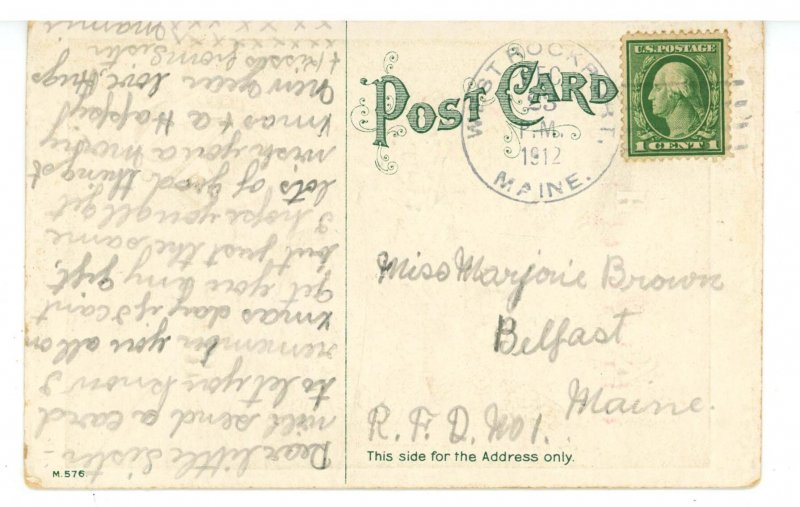 POST CARD
WEST ROCKPORT,
23
P.M.
1912
MAINE.
U.S. POSTAGE
1 CENT 1
Miss Marjorie Brown
Belfast
Maine.
R. F. D. No 1.
This side for the Address only.
M. 576
Dear little Sister-
will send a card
to let you know I
remember you all on
Xmas day if I cant
get you any gift,
but just the same
I hope you all get
lots of good things
wish you a
Xmas + a Happy
New year love, Hugs
+ kisses from sister
x x x x x x x x